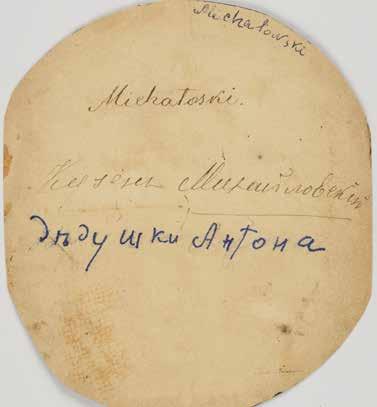 Michałowski
Michałoski.
Кузенъ Михайловскій
Дѣдушки Антона